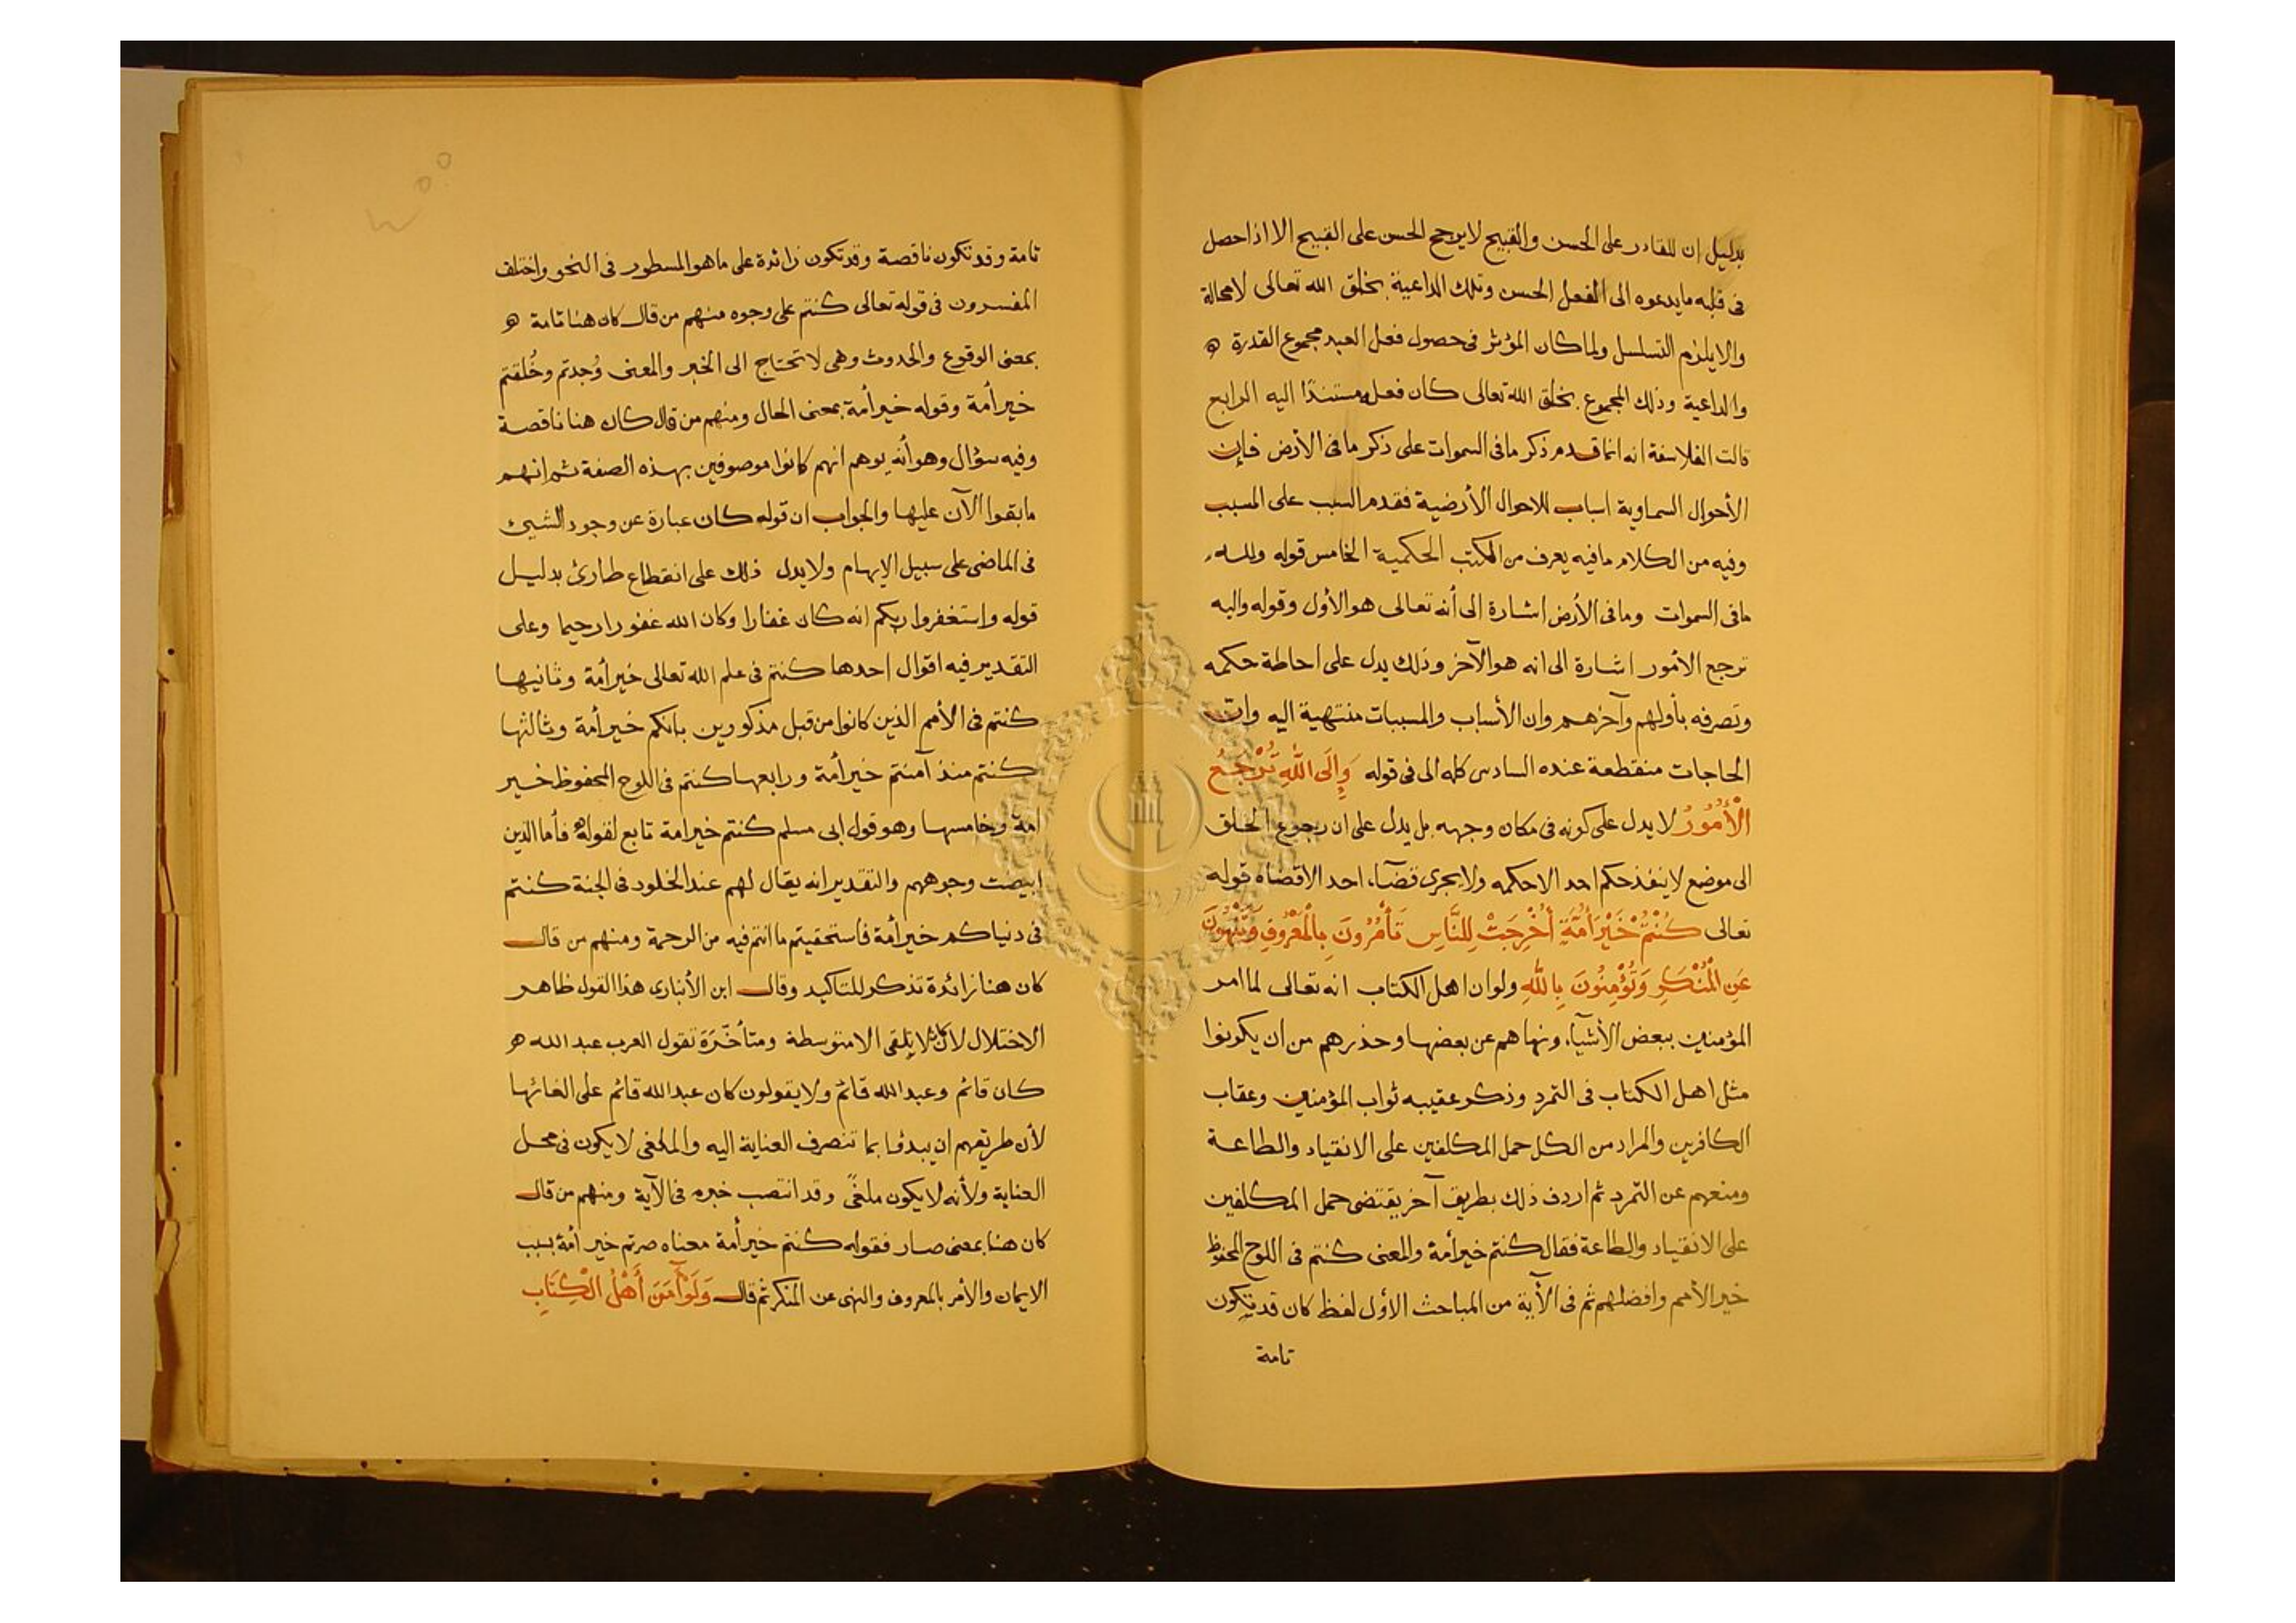 بدليل ان القادر على الحسن والقبيح لا يرجح الحسن على القبيح الا اذا حصل
فى قلبه ما يدعوه الى الفعل الحسن وتلك الداعية بخلق الله تعالى لا محالة
والا يلزم التسلسل ولما كان المؤثر فى حصول فعل العبد مجموع القدرة
والداعية وذلك المجموع بخلق الله تعالى كان فعله مستندًا اليه الرابع
قالت الفلاسفة انه انما قدم ذكر ما فى السموات على ذكر ما فى الأرض فإن
الأحوال السماوية اسباب للاحوال الأرضية فقدم السبب على المسبب
وفيه من الكلام ما فيه يعرف من الكتب الحكمية الخامس قوله ولله
ما فى السموات وما فى الأرض اشارة الى أنه تعالى هو الأول وقوله واليه
ترجع الأمور اشارة الى انه هو الآخر وذلك يدل على احاطة حكمه
وتصرفه بأولهم وآخرهم وان الأسباب والمسببات منتهية اليه وان
الحاجات منقطعة عنده السادس كلمه الى فى قوله وَإِلَى اللَّهِ تُرْجَعُ
الْأُمُورُ لا يدل على كونه فى مكان وجهه بل يدل على ان رجوع الخلق
الى موضع لا ينفذ حكم احد الا حكمه ولا يجرى قضآء احد الا قضاه قوله
تعالى كُنْتُمْ خَيْرَ أُمَّةٍ أُخْرِجَتْ لِلنَّاسِ تَأْمُرُونَ بِالْمَعْرُوفِ وَتَنْهَوْنَ
عَنِ الْمُنْكَرِ وَتُؤْمِنُونَ بِاللَّهِ ولو ان اهل الكتاب انه تعالى لما امر
المؤمنين ببعض الأشيآء ونهاهم عن بعضها وحذرهم من أن يكونوا
مثل اهل الكتاب فى التمرد وذكر عقيبه ثواب المؤمنين وعقاب
الكافرين والمراد من الكل حمل المكلفين على الانقياد والطاعة
ومنعهم عن التمرد ثم اردف ذلك بطريق آخر يقتضى حمل المكلفين
على الانقياد والطاعة فقال كنتم خير أمة والمعنى كنتم فى اللوح المحفوظ
خير الأمم وافضلهم ثم فى الآية من المباحث الأول لفظ كان قد تكون
تامة
تامة وقد تكون ناقصة وقد تكون زائدة على ما هو المسطور فى النحو واختلف
المفسرون فى قوله تعالى كنتم على وجوه منهم من قال كان هنا تامة
بمعنى الوقوع والحدوث وهى لا تحتاج الى الخبر والمعنى وُجدتم وخُلقتم
خير أمة وقوله خير أمة بمعنى الحال ومنهم من قال كان هنا ناقصة
وفيه سؤال وهو أنه يوهم انهم كانوا موصوفين بهذه الصفة ثم انهم
ما بقوا الآن عليها والجواب ان قوله كان عبارة عن وجود الشيئ
فى الماضى على سبيل الإبهام ولا يدل ذلك على انقطاع طارئ بدليل
قوله واستغفروا ربكم انه كان غفارا وكان الله غفورا رحيما وعلى
التقدير فيه اقوال احدها كنتم فى علم الله تعالى خير أمة وثانيها
كنتم فى الأمم الذين كانوا من قبل مذكورين بانكم خير أمة وثالثها
كنتم منذ آمنتم خير أمة ورابعها كنتم فى اللوح المحفوظ خير
امة وخامسها وهو قول ابى مسلم كنتم خير امة تابع لقوله فأما الذين
ابيضت وجوههم والتقدير انه يقال لهم عند الخلود فى الجنة كنتم
فى دنياكم خير أمة فاستحقيتم ما انتم فيه من الرحمة ومنهم من قال
كان هنا زائدة تذكر للتاكيد وقال ابن الأنبارى هذا القول ظاهر
الاختلال لان كان لا يلقى الا متوسطة ومتأخّرَة تقول العرب عبد الله
كان قائم وعبد الله قائم ولا يقولون كان عبد الله قائم على الغائها
لأن طريقهم ان يبدؤا بما تنصرف العناية اليه والملغى لا يكون فى محل
العناية ولأنه لا يكون ملغىً وقد انتصب خبره فى الآية ومنهم من قال
كان هنا بمعنى صار فقوله كنتم خير أمة معناه صرتم خير أمة بسبب
الايمان والأمر بالمعروف والنهى عن المنكر ثم قال وَلَوْ آمَنَ أَهْلُ الْكِتَابِ